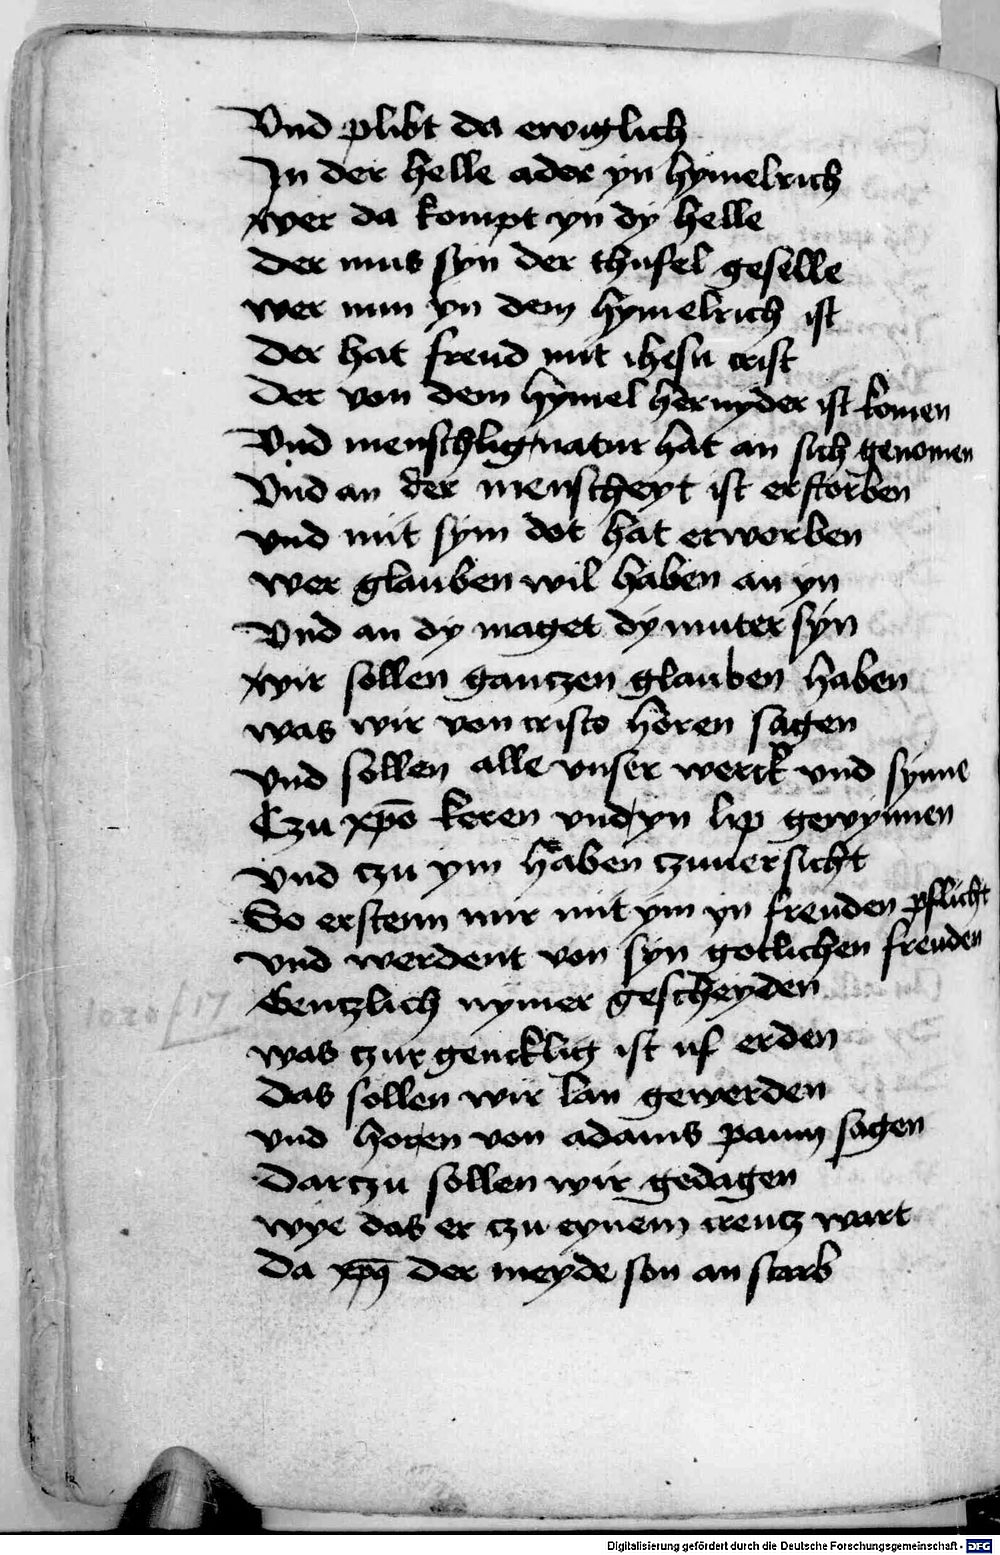 Vnd plibt da ewiglich
In der helle ader yn hymelrich
wer da kompt yn dy helle
der mus syn der thufel geselle
wer nun yn dem hymelrich ist
Der hat freud mit ihesu crist
der von dem hymel hernyder ist komen
Vnd menschlig natur hat an sich genomen
Vnd an der menscheyt ist erstorben
vnd mit sym dot hat erworben
wer glauben wil haben an yn
Vnd an dy maget dy muter syn
wir sollen gantzen glauben haben
was wir von cristo horen sagen
vnd sollen alle vnser werck vnd synne
Czu xpo keren vnd yn lip gewynnen
vnd czu ym haben czuuersicht
So ersten mir mit ym yn freuden pflicht
vnd werdent von syn gotlichen freuden
Gentzlich nymer gescheyden
was czurgencklig ist uf erden
das sollen wir lan gewerden
vnd horen von adams paum sagen
Darczu sollen wir gedagen
wye das er czu eynem creutz wart
Da xps der meyde son an starb
Digitalisierung gefördert durch die Deutsche Forschungsgemeinschaft - DFG